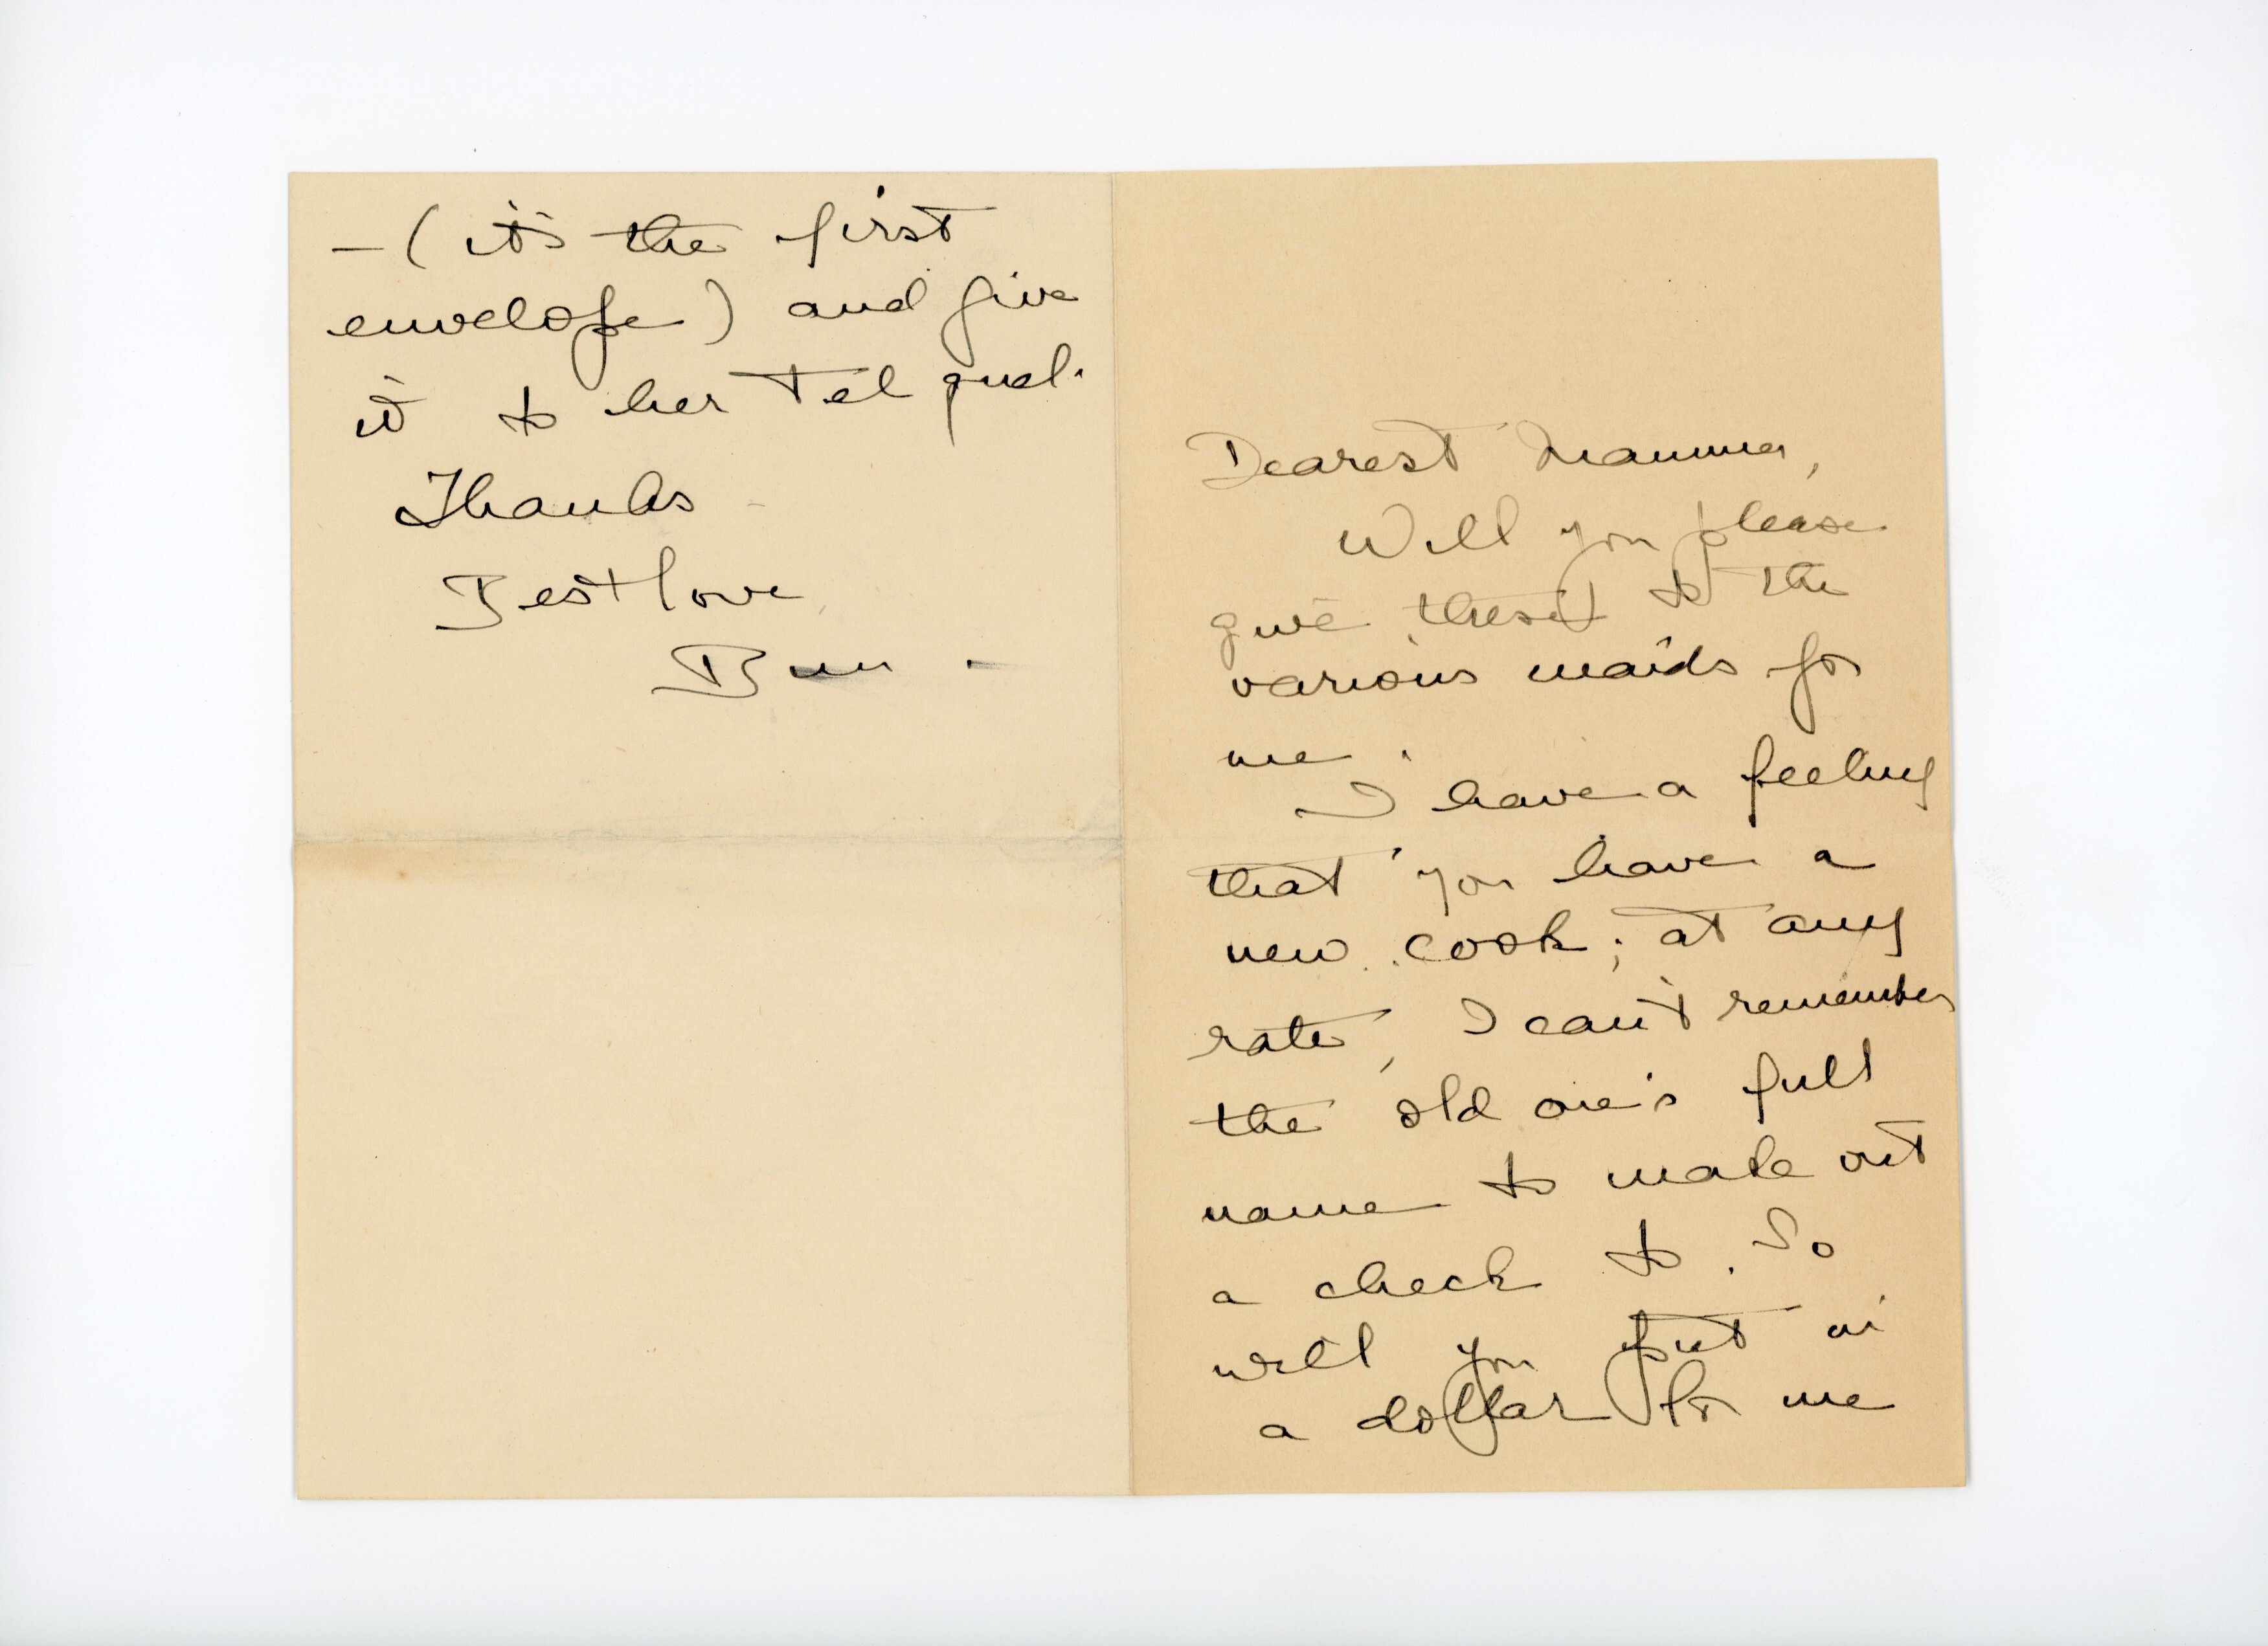 Dearest Mamma,
Will you please
give these to the
various maids for
me.
I have a feeling
that you have a
new cook; at any
rate, I can't remember
the old one's full
name to make out
a check to. So
will you put in
a dollar for me
— (it's the first
envelope) and give
it to her tel quel.
Thanks -
Best love
Bun -